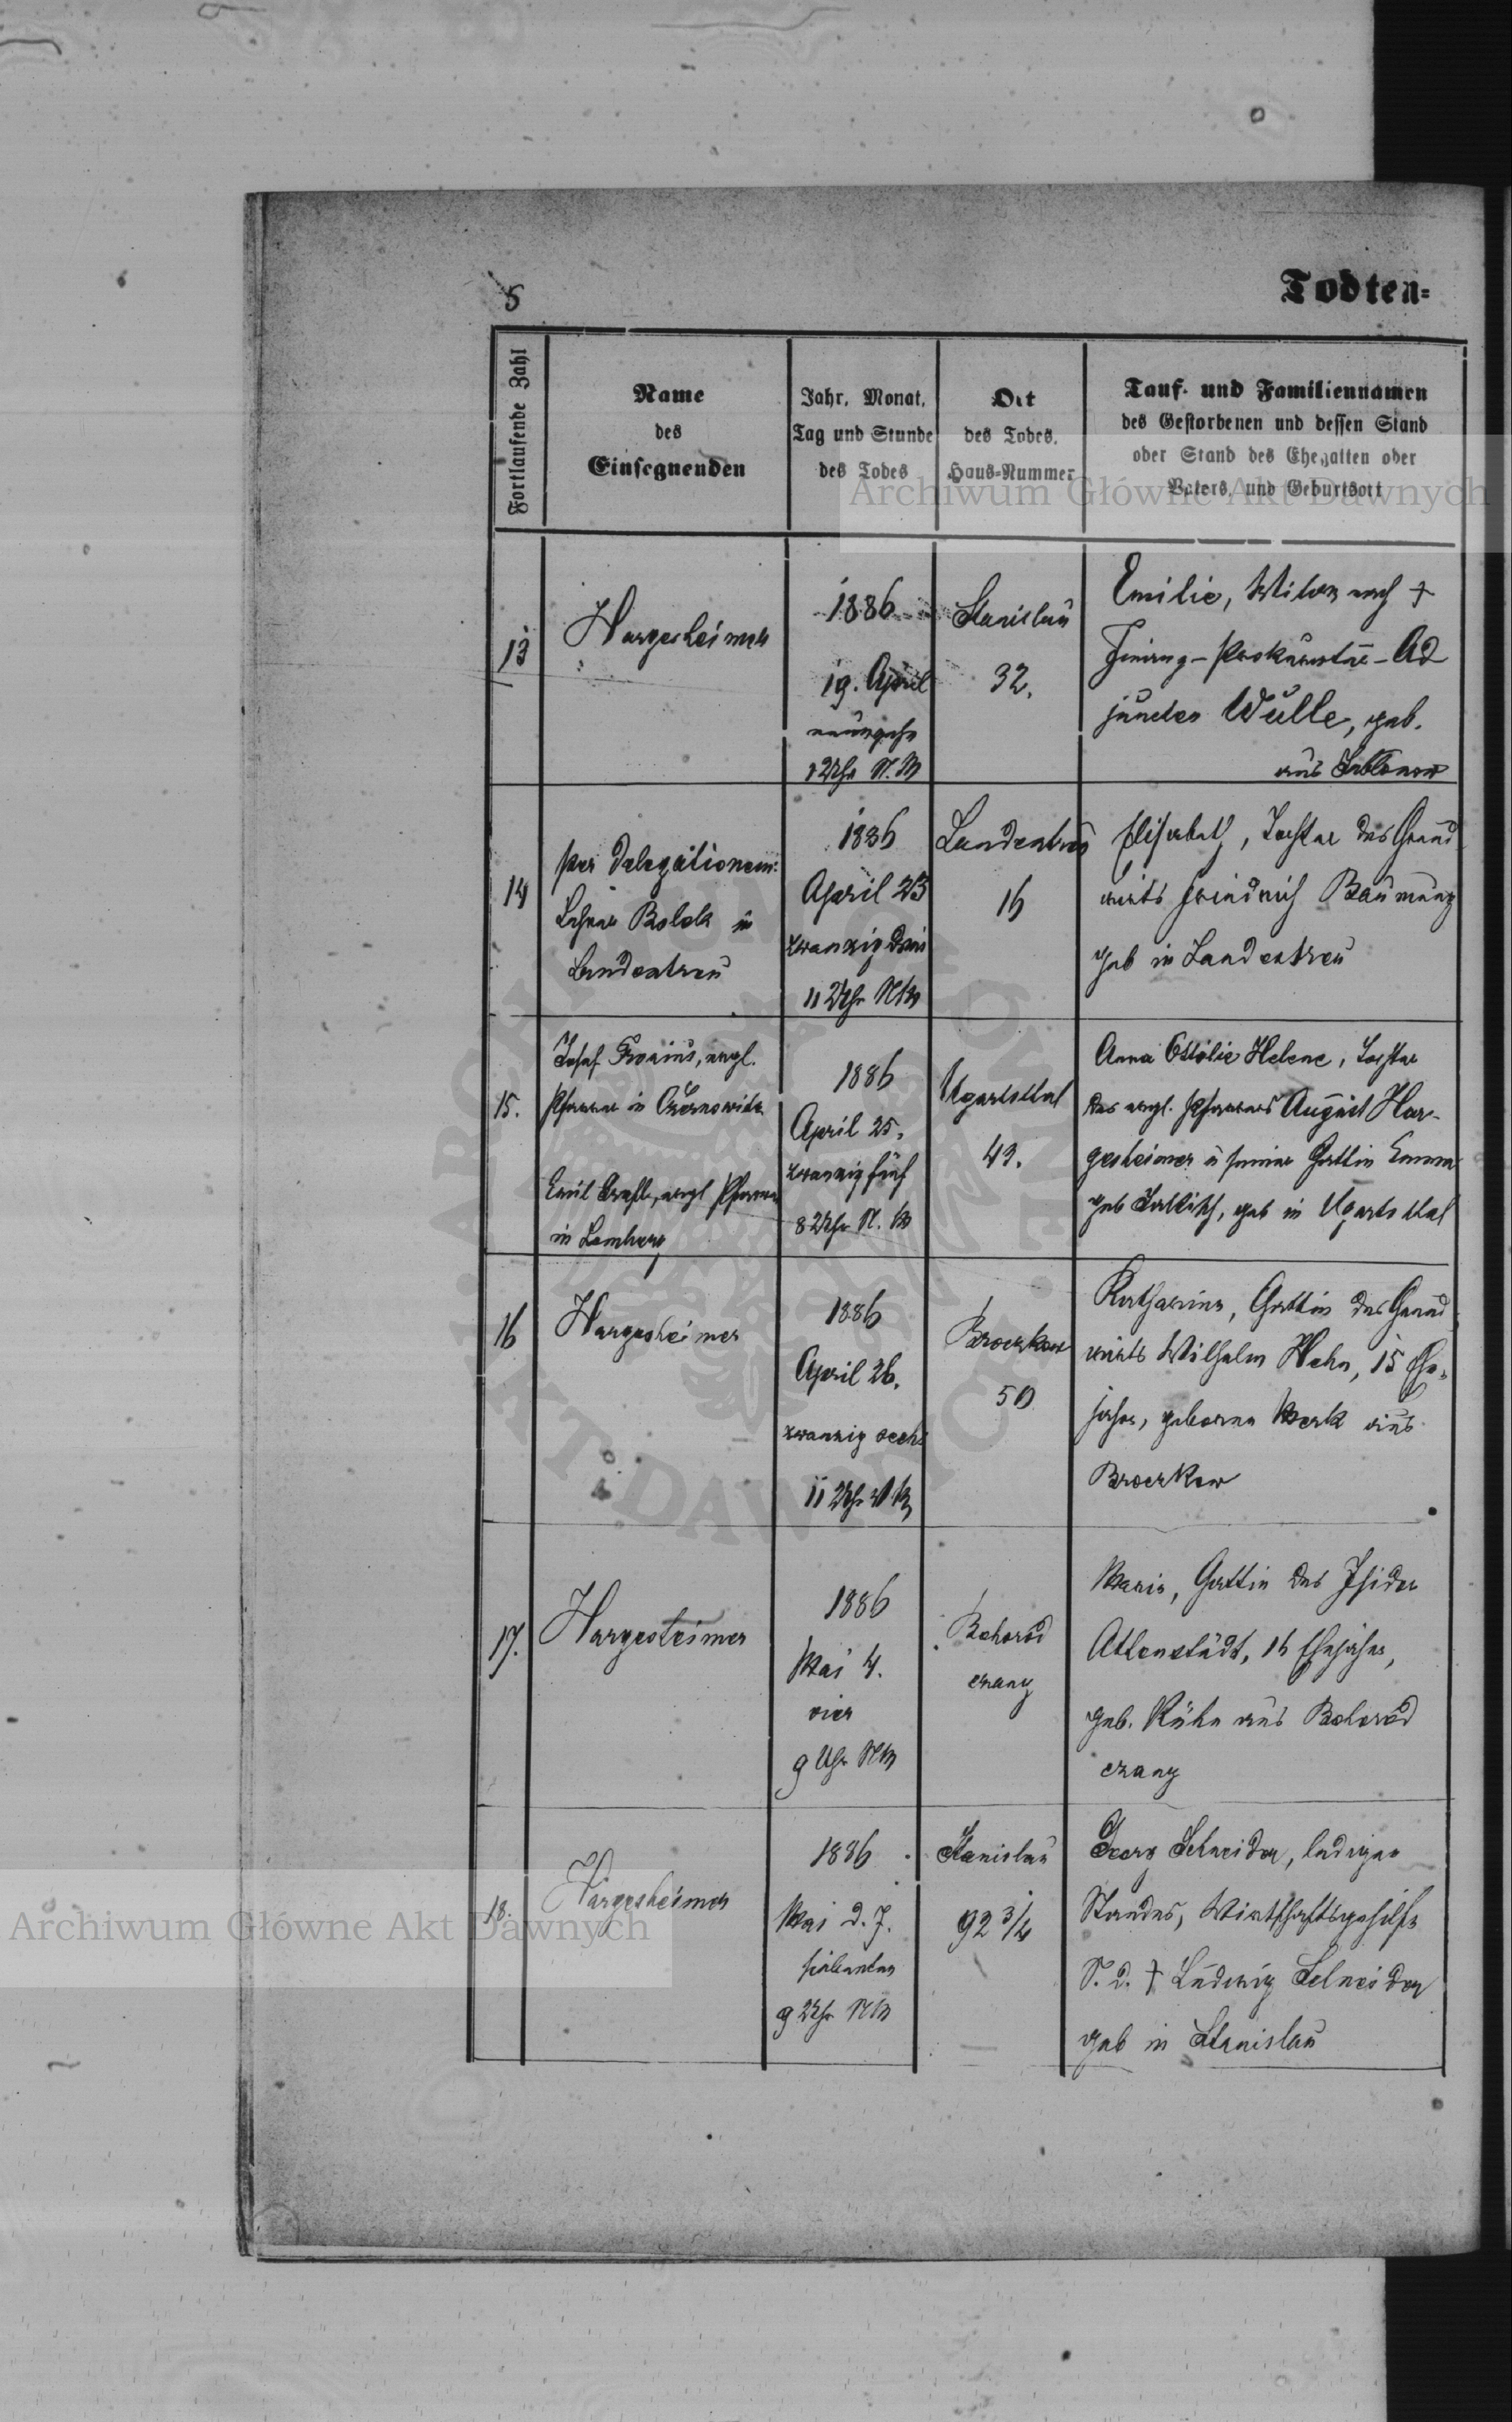 5
Todten=
Fortlaufende Zahl
Name
des
Einsegnenden
Jahr, Monat,
Tag und Stunde
des Todes
Ort
des Todes,
Haus-Nummer
Tauf- und Familiennamen
des Gestorbenen und dessen Stand
oder Stand des Ehegatten oder
Vaters, und Geburtsort
Archiwum Główne Akt Dawnych
13
Hargesheimer
1886
19. April
neunzehn
Uhr N.M
Stanislau
32.
Emilie, Witwe nach †
Finanz-Prokuratur-Ad
juncten Wulle, geb.
aus Jablonow
14
per delegationem:
Lehrer Bolek in
Landestreu
1886
April 23
zwanzig drei
11 Uhr NM
Landestreu
16
Elisabeth, Tochter des Grund
wirts Friedrich Baumung
geb in Landestreu
15.
Josef Fronius, evgl.
Pfarrer in Czernowitz
Emil evgl Pfarrer
in Lemberg
1886
April 25.
zwanzig fünf
8 Uhr N. M
Ugartsthal
43.
Anna Ottolie Helene, Tochter
des evgl. Pfarrers August Har-
gesheimer u seiner Gattin Emma
geb geb in Ugartsthal
16
Hargesheimer
1886
April 26.
zwanzig sechs
11 Uhr
Broczkow
50
Katharina, Gattin des Grund
wirts Wilhelm Hahn, 15 Ehe-
jahre, geborene Merk aus
Broczkow
17.
Hargesheimer
1886
Mai 4.
vier
9 Uhr NM
Bohorod
czany
Maria, Gattin des Isidor
Attenstädt, 16 Ehejahre,
geb. Kühn aus Bohorod
czany
18.
Hargesheimer
1886
Mai d. 7.
siebenten
9 Uhr NM
Stanislau
92 3/4
Georg Schneider, ledigen
Standes, Wirtschaftsgehilfe
S. d. † Ludwig Schneider
geb in Stanislau
Archiwum Główne Akt Dawnych